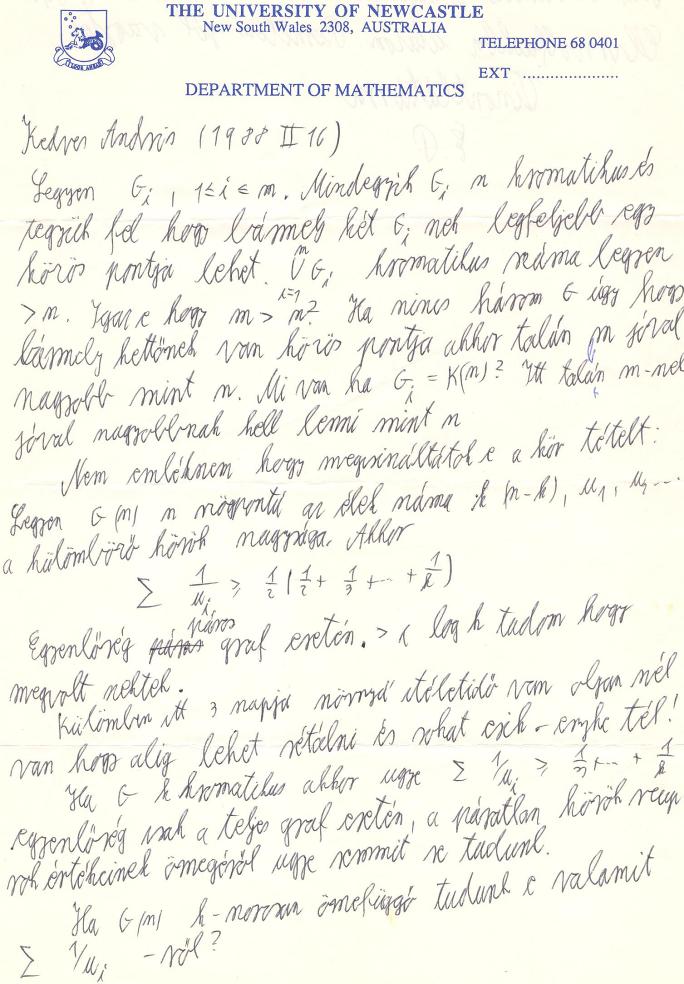 THE UNIVERSITY OF NEWCASTLE
New South Wales 2308, AUSTRALIA
TELEPHONE 68 0401
EXT ....................
DEPARTMENT OF MATHEMATICS
Kedves Andris (1988 II 16)
Legyen G_i, 1≤i≤m. Mindegyik G_i n kromatikus és
tegyük fel hogy bármely két G_i nek legfeljebb egy
közös pontja lehet. ⋃_{i=1}^m G_i kromatikus száma legyen
> n. Igaz e hogy m > n². Ha nincs három G úgy hogy
bármely kettőnek van közös pontja akkor talán m jóval
nagyobb mint n. Mi van ha G_i = K(n)? Itt talán m-nek
jóval nagyobbnak kell lenni mint n
Nem emlékszem hogy megcsináltátok e a kör tételt:
Legyen G(n) n szögpontú az élek száma k(n-k), u_1, u_2, ...
a külömböző körök nagysága. Akkor
∑ 1/u_i ≥ 1/2 (1/2 + 1/3 + ... + 1/k)
Egyenlőség páros graf esetén. > c log k tudom hogy
megvolt nektek.
Külömben itt 3 napja szörnyű itéletidő van olyan szél
van hogy alig lehet sétálni és sokat esik - enyhe tél!
Ha G k kromatikus akkor ugye ∑ 1/u_i ≥ 1/3 + ... + 1/k
egyenlőség csak a teljes graf esetén, a páratlan körök recip
rok értékeinek ömegéről ugye semmit se tudunk.
Ha G(n) k-szorosan ömefüggő tudunk e valamit
∑ 1/u_i -ről?